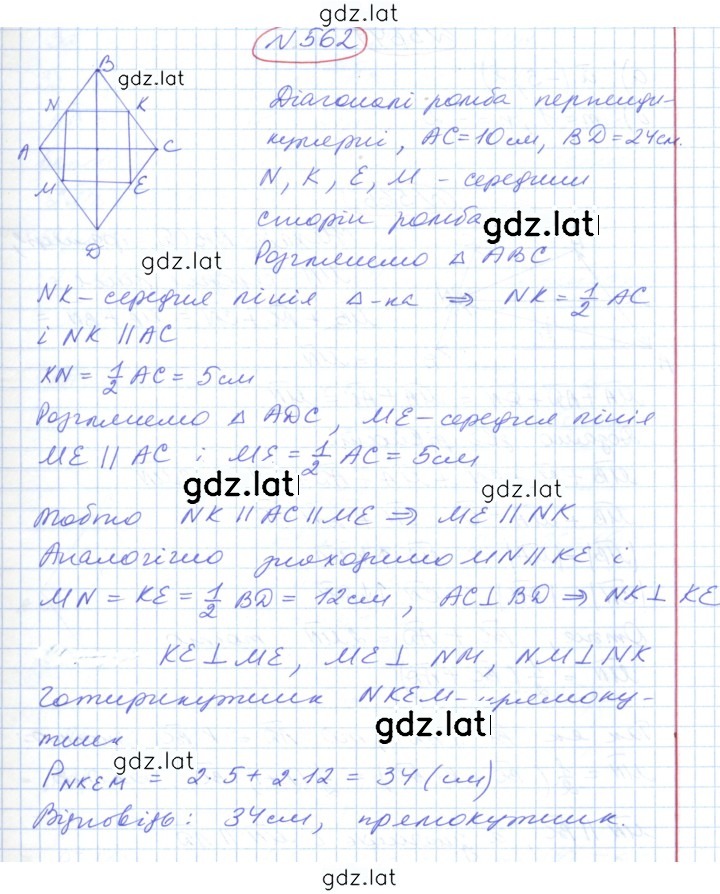 gdz.lat
N 562
B
gdz.lat
N K
A C
M E
D
Діагоналі ромба перпенди-
кулярні, AC=10см, BD=24см.
N, K, E, M - середини
сторін ромба
gdz.lat
gdz.lat
Розглянемо △ ABC
NK - середня лінія △-ка ⇒ NK = 1/2 AC
і NK || AC
KN = 1/2 AC = 5см
Розглянемо △ ADC, ME - середня лінія
ME || AC і ME = 1/2 AC = 5см
gdz.lat
gdz.lat
тобто NK || AC || ME ⇒ ME || NK
Аналогічно знаходимо MN || KE і
MN = KE = 1/2 BD = 12см, AC⊥BD ⇒ NK⊥KE
KE⊥ME, ME⊥NM, NM⊥NK
Чотирикутник NKEM - прямоку-
тник
gdz.lat
gdz.lat
P NKEM = 2·5+2·12 = 34 (см)
Відповідь: 34см, прямокутник.
gdz.lat